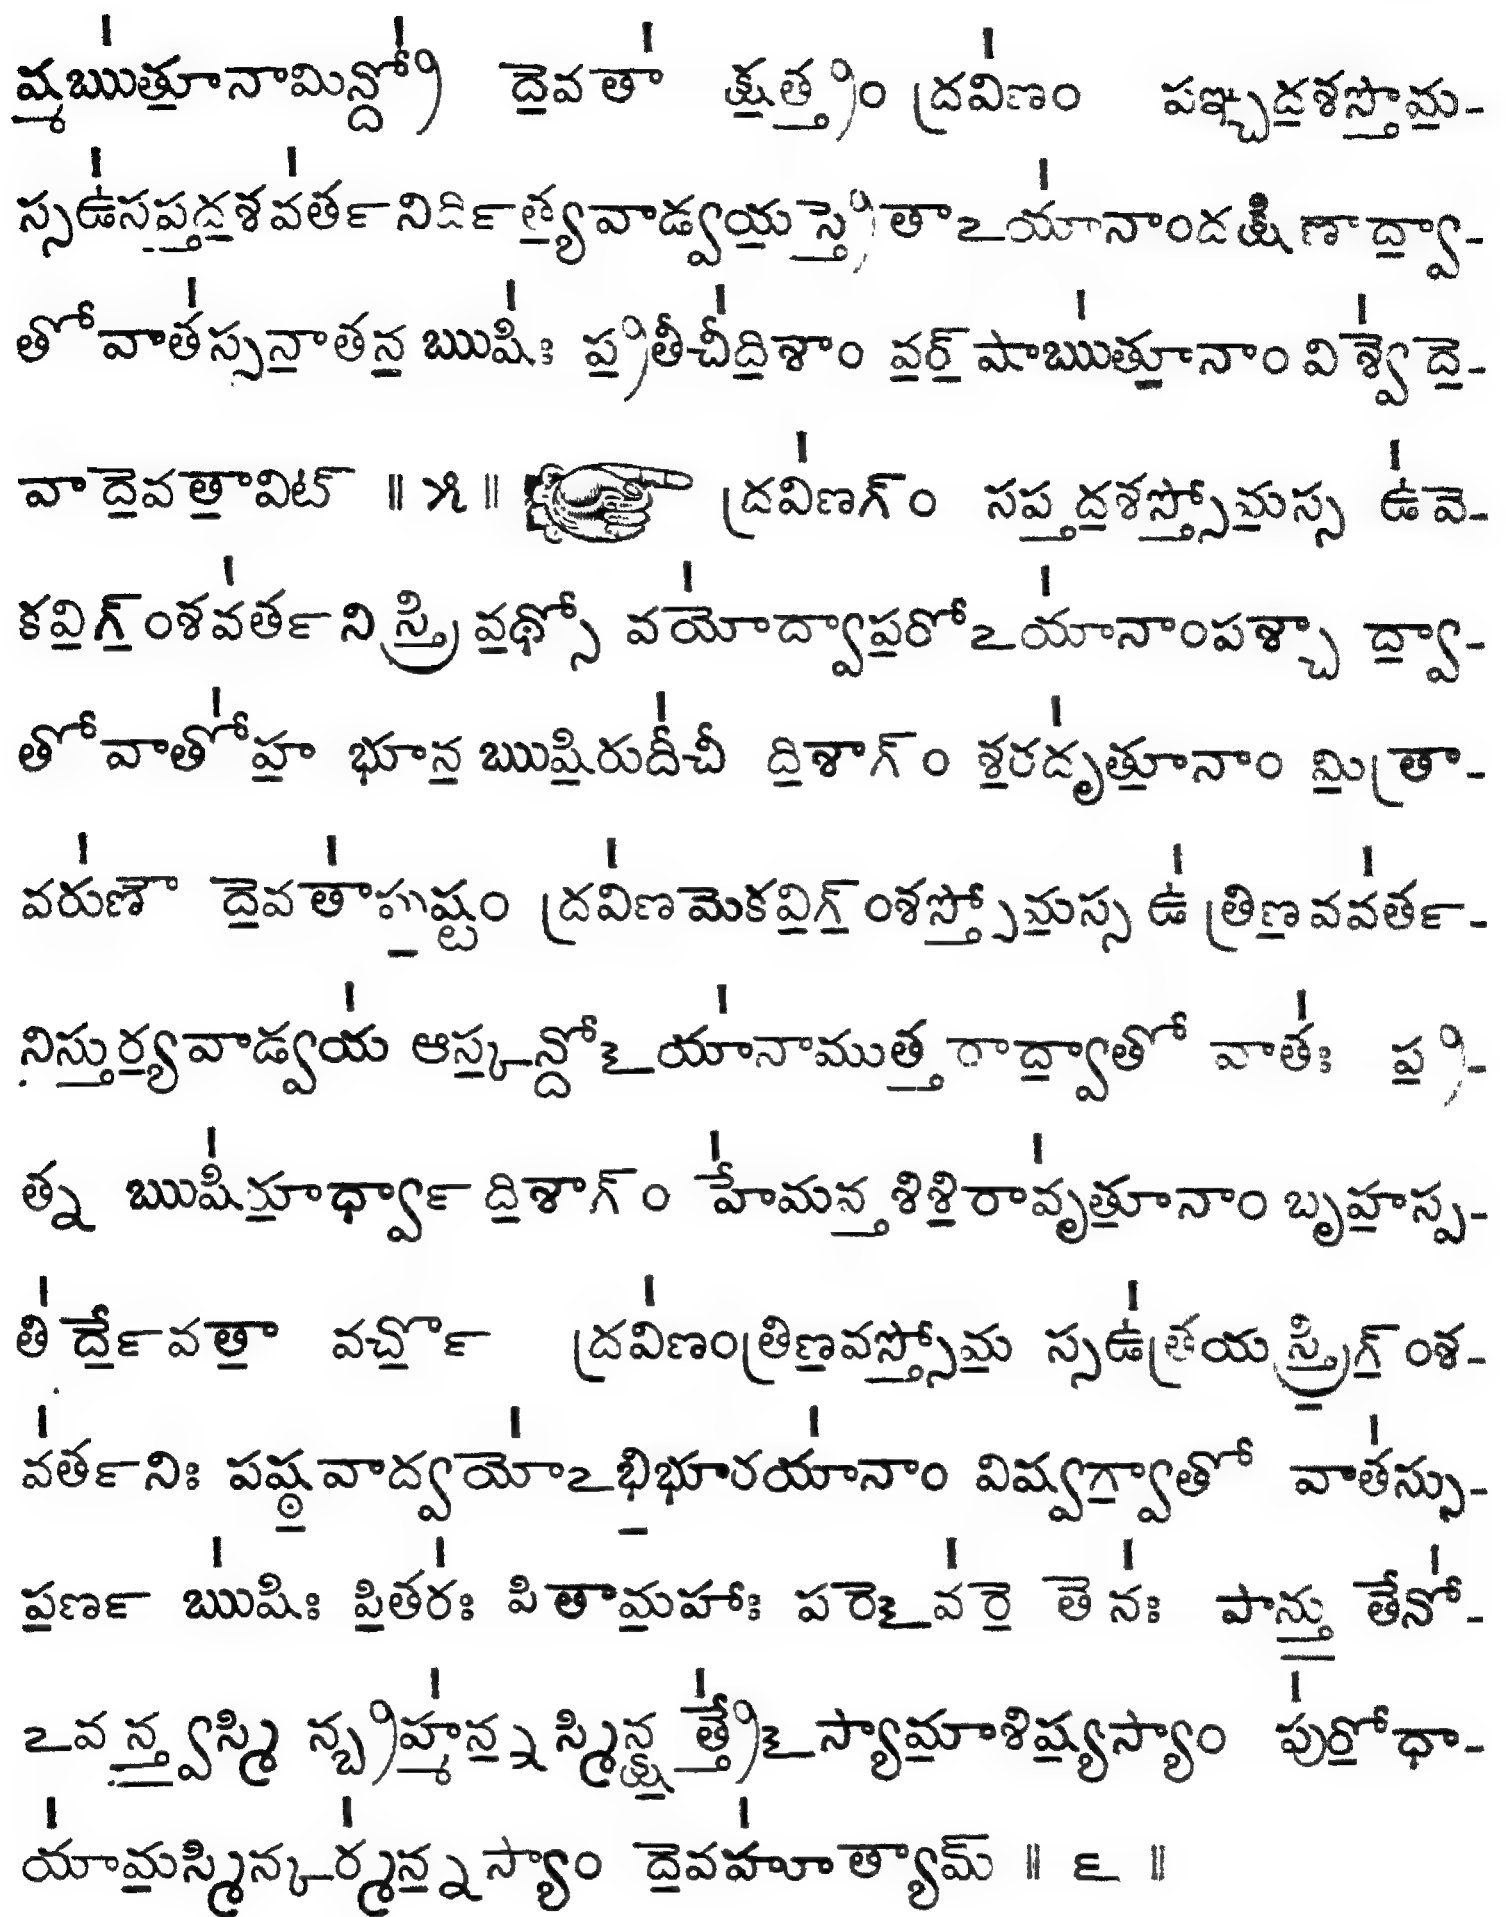 ష్మఋ॑త్తూ॒నామిన్ద్రో॑ దే॒వతా॑ క్ష॒త్త్రం ద్రవి॑ణం పఞ్చద॒శస్తో॒మ॒-
స్సఉ॑సప్త॒ద॒శవ॑ర్తనిర్దిత్య॒వాడ్వయ॒స్త్రే॒తాఽయా॑నాందక్షిణాద్వా॒-
తోవాత॑స్సనా॒తన॒ ఋషిః॑ ప్ర॒తీచీ॑ది॒శాం వ॒ర్॒షాఋ॑త్తూ॒నాం విశ్వే॑ దే॒-
వాదే॒వతా॒విట్ ॥ ౫ ॥ ☞ ద్రవి॑ణగ్ం సప్త॒ద॒శస్తో॒మ॒స్స ఉ॑ వె-
కవి॒గ్॒ంశవ॑ర్తనిస్త్రి॒వ॒థ్సో వయో॑ద్వాప॒రోఽయా॑నాంపశ్చా ద్వా॒-
తోవాతో॑హ॒ భూన॒ ఋషి॒రుదీ॑చీ ది॒శాగ్ం శ॒రదృ॑త్తూ॒నాం మి॒త్రా-
వరు॑ణౌ దే॒వతా॑పు॒ష్టం ద్రవి॑ణమెకవి॒గ్॒ంశస్తో॒మ॒స్స ఉ॑ త్రిణ॒వవ॑ర్త-
నిస్తు॒ర్య॒వాడ్వయ॑ ఆస్క॒న్దోఽయా॑నాముత్త॒రాద్వా॒తో వాతః॑ ప్ర॒-
త్న ఋషి॑రూ॒ర్ధ్వా ది॒శాగ్ం హే॑మన్త॒శిశి॒రావృ॑త్తూ॒నాం బృహ॒స్ప-
తి॑ ర్దే॒వతా॒ వర్చో॒ ద్రవి॑ణంత్రిణ॒వస్తో॒మ॒ స్సఉ॑త్రయస్త్రి॒గ్॒ంశ-
వ॑ర్తనిః పష్ఠ॒వాద్వయో॑ఽభి॒భూరయా॑నాం విష్వగ్వా॒తో వాత॑స్సు-
ప॒ర్ణ ఋషిః॑ పి॒తరః॑ పితా॒మ॒హాః పరెఽవ॑రె॒ తె నః॑ పాన్తు॒ తేనో॑-
ఽవన్త్వ॒స్మి న్బ్రహ్మ॑న్న॒స్మిన్క్ష॒త్త్రే॑ఽస్యామా॒శిష్య॒స్యాం పు॑రో॒ధా-
యా॑మ॒స్మిన్కర్మ॑న్న॒స్యాం దే॒వహూ॑త్యా॒మ్ ॥ ౬ ॥